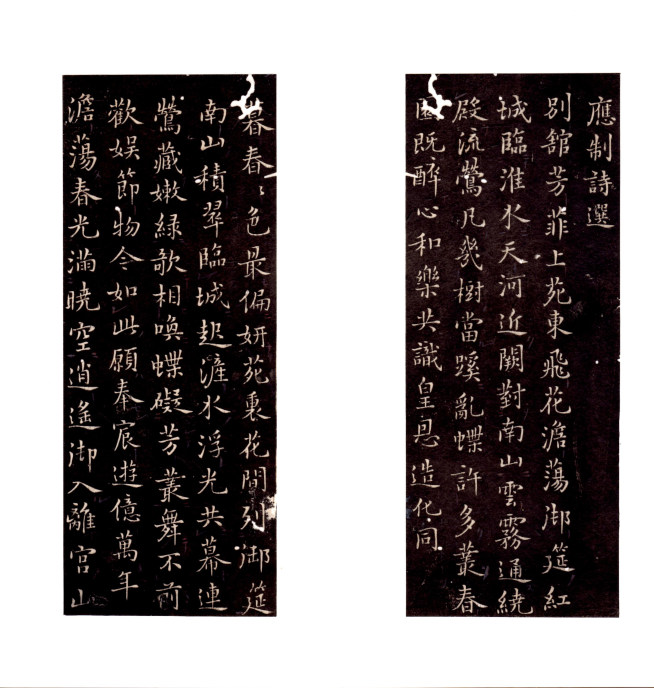 應制詩選
別舘芳菲上苑東飛花澹蕩御筵紅
城臨淮水天河近闕對南山雲霧通繞
殿流鶯凡幾樹當蹊亂蝶許多叢春
園既醉心和樂共識皇恩造化同
暮春〻色最偏妍苑裏花開列御筵
南山積翠臨城起滻水浮光共幕連
鶯藏嫩綠歌相喚蝶礙芳叢舞不前
歡娛節物今如此願奉宸遊億萬年
澹蕩春光滿曉空逍遙御入離宮山